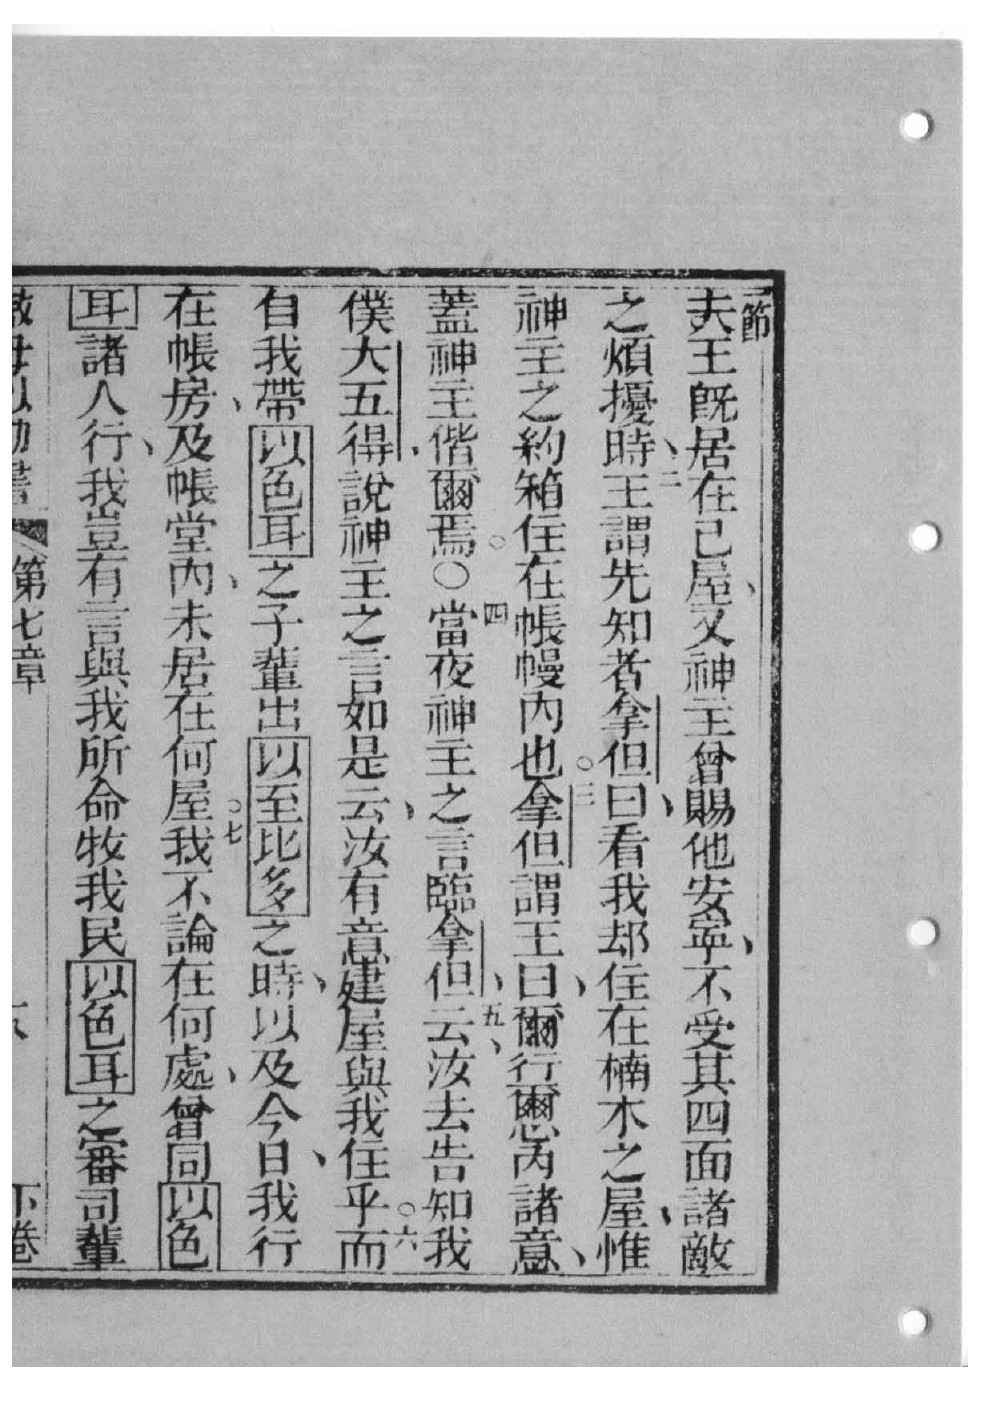 一節
夫王旣居在已屋、又神主曾賜他安寍、不受其四面諸敵
之煩擾時、二王謂先知者拿但曰、看我却住在楠木之屋、惟
神主之約箱住在帳幔內也。三拿但謂王曰、爾行爾悤內諸意、
蓋神主偕爾焉。○四當夜神主之言臨拿但、云、五汝去告知我
僕大五得、說神主之言如是云、汝有意建屋與我住乎。六而
自我帶以色耳之子輩出以至比多之時、以及今日、我行
在帳房、及帳堂內、未居在何屋。七我不論在何處、曾同以色
耳諸人行、我豈有言與我所命牧我民以色耳之審司輩
第七章
下卷